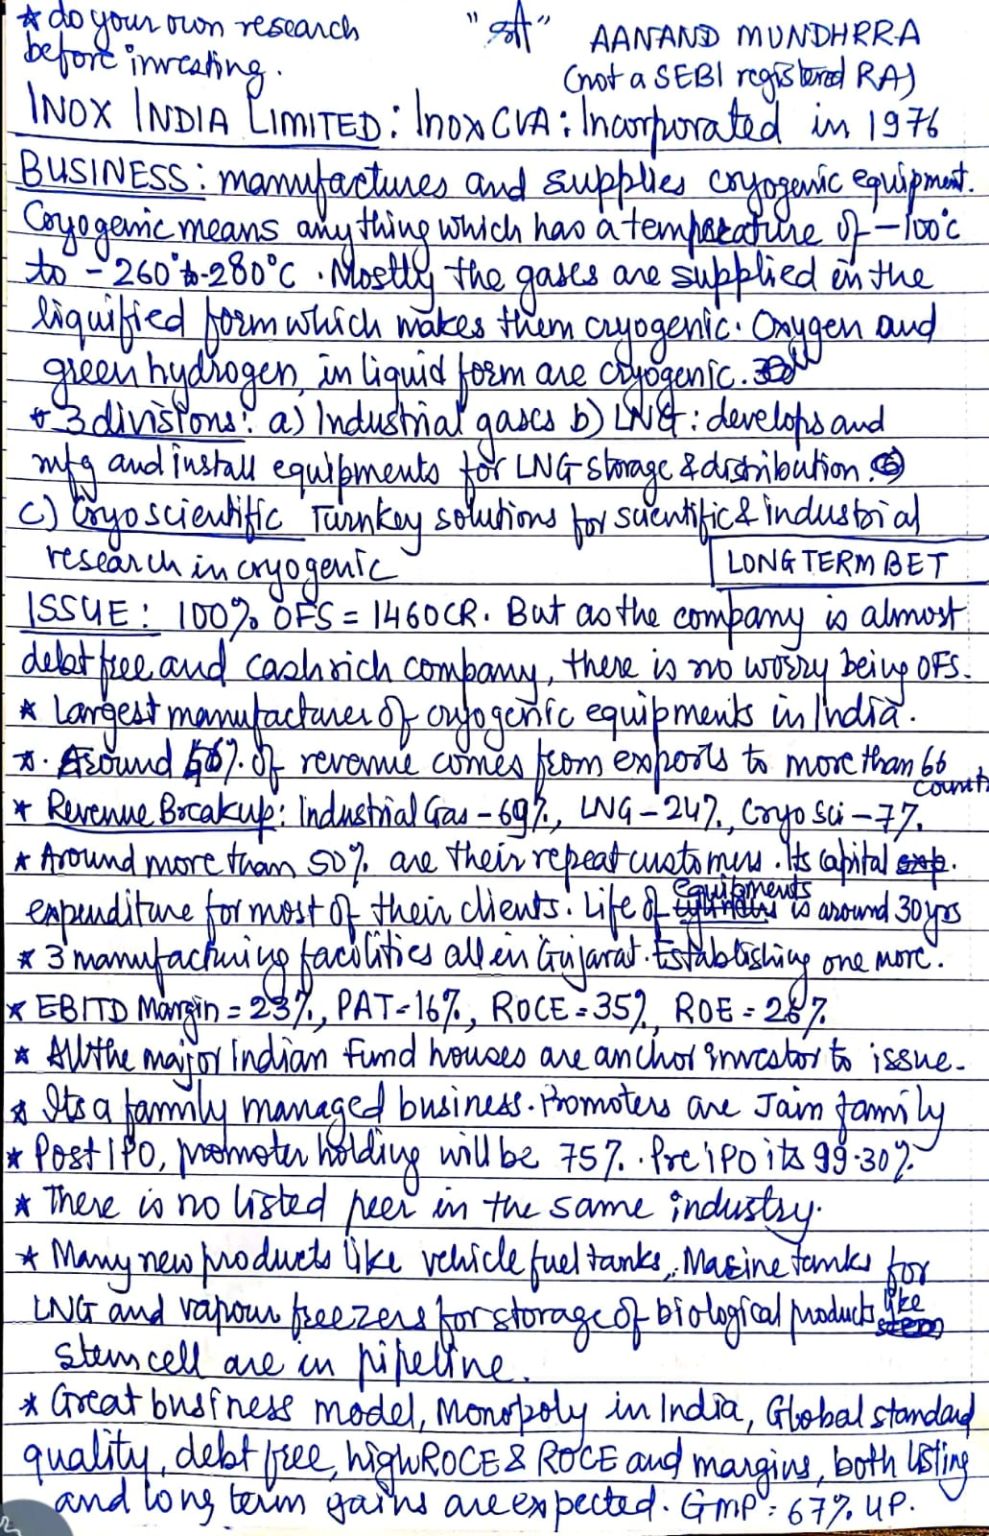 * do your own research "श्री" AANAND MUNDHRRA
before investing. (not a SEBI registered RA)
INOX INDIA LIMITED: InoxCVA: Incorporated in 1976
BUSINESS: manufactures and supplies cryogenic equipment.
Cryogenic means anything which has a temperature of -100°C
to -260° to -280°C. Mostly the gases are supplied in the
liquified form which makes them cryogenic. Oxygen and
green hydrogen in liquid form are cryogenic.
* 3 divisions: a) Industrial gases b) LNG: develops and
mfg and install equipments for LNG storage & distribution.
c) Cryoscientific Turnkey solutions for scientific & industrial
research in cryogenic LONG TERM BET
ISSUE: 100% OFS = 1460CR. But as the company is almost
debt free and cash rich company, there is no worry being OFS.
* Largest manufacturer of cryogenic equipments in India.
*. Around % of revenue comes from exports to more than 66
* Revenue Breakup: Industrial Gas - 69%, LNG - 24%, Cryo Sci - 7%.
* Around more than 50% are their repeat customers. Its capital exp.
expenditure for most of their clients. Life of equipments is around 30 yrs
* 3 manufacturing facilities all in Gujarat. Establishing one more.
* EBITD Margin = 23%, PAT - 16%, ROCE = 35%, ROE =
* All the major Indian Fund houses are anchor investor to issue.
* Its a family managed business. Promoters are Jain family
* Post IPO, promoter holding will be 75%. Pre IPO its 99.30%
* There is no listed peer in the same industry.
* Many new products like vehicle fuel tanks, Marine tanks for
LNG and vapour freezers for storage of biological products like
stem cell are in pipeline.
* Great business model, Monopoly in India, Global standard
quality, debt free, high ROCE & ROCE and margins, both listing
and long term gains are expected. GMP = 67% UP.